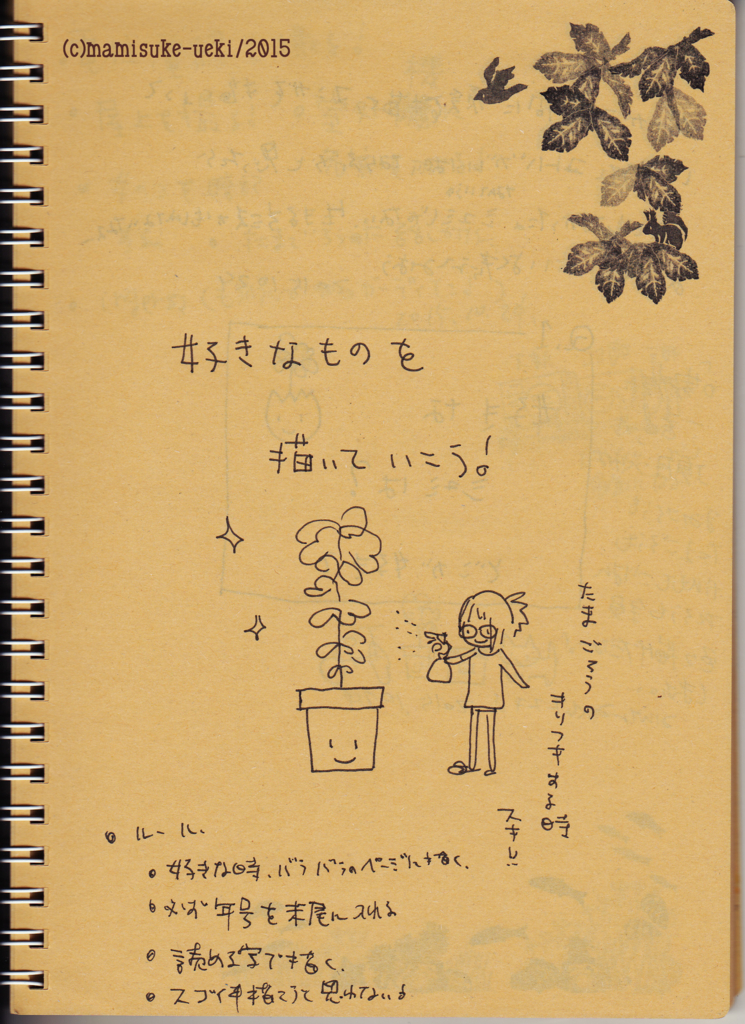 (c)mamisuke-ueki/2015
好きなものを
描いていこう!
たまごろうの
きりフキする時
スキ!!
ルール、
好きな時、バラバラのページに描く、
必ず年号を末尾に入れる
読める字で描く、
スゴイ
描こうと思わない